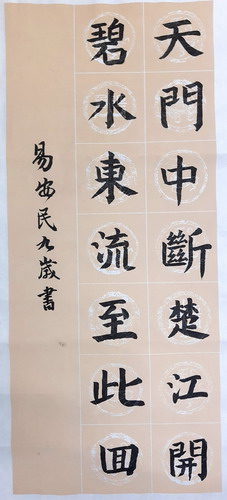 天門中斷楚江開
碧水東流至此回
易安民九歲書